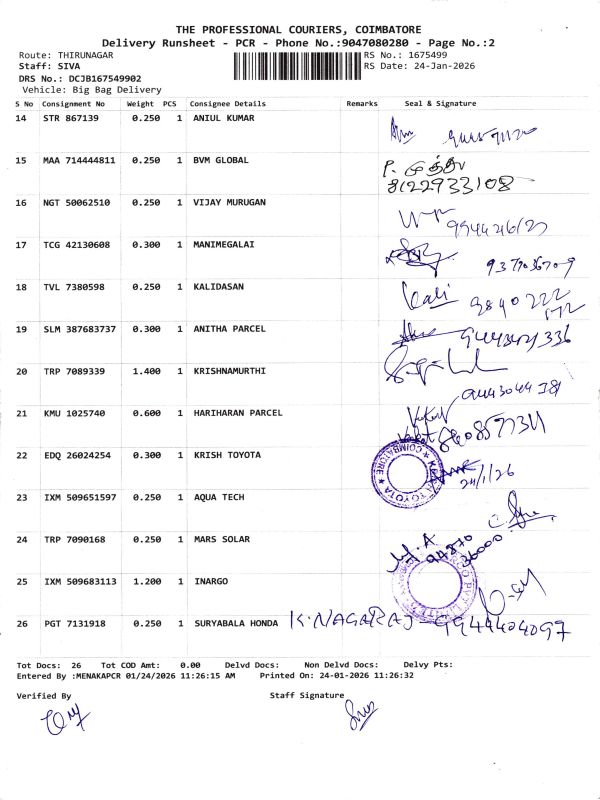 THE PROFESSIONAL COURIERS, COIMBATORE
Delivery Runsheet - PCR - Phone No.:9047080280 - Page No.:2
Route: THIRUNAGAR RS No.: 1675499
Staff: SIVA RS Date: 24-Jan-2026
DRS No.: DCJB167549902
Vehicle: Big Bag Delivery
S No Consignment No Weight PCS Consignee Details Remarks Seal & Signature
14 STR 867139 0.250 1 ANIUL KUMAR
15 MAA 714444811 0.250 1 BVM GLOBAL P. முத்து
8122933108
16 NGT 50062510 0.250 1 VIJAY MURUGAN
17 TCG 42130608 0.300 1 MANIMEGALAI
18 TVL 7380598 0.250 1 KALIDASAN Kali 9840222
572
19 SLM 387683737 0.300 1 ANITHA PARCEL
20 TRP 7089339 1.400 1 KRISHNAMURTHI
21 KMU 1025740 0.600 1 HARIHARAN PARCEL
22 EDQ 26024254 0.300 1 KRISH TOYOTA COIMBATORE
24/1/26
23 IXM 509651597 0.250 1 AQUA TECH
24 TRP 7090168 0.250 1 MARS SOLAR
94870
36000
25 IXM 509683113 1.200 1 INARGO
26 PGT 7131918 0.250 1 SURYABALA HONDA K.NAGARAJ-9944404097
Tot Docs: 26 Tot COD Amt: 0.00 Delvd Docs: Non Delvd Docs: Delvy Pts:
Entered By :MENAKAPCR 01/24/2026 11:26:15 AM Printed On: 24-01-2026 11:26:32
Verified By Staff Signature